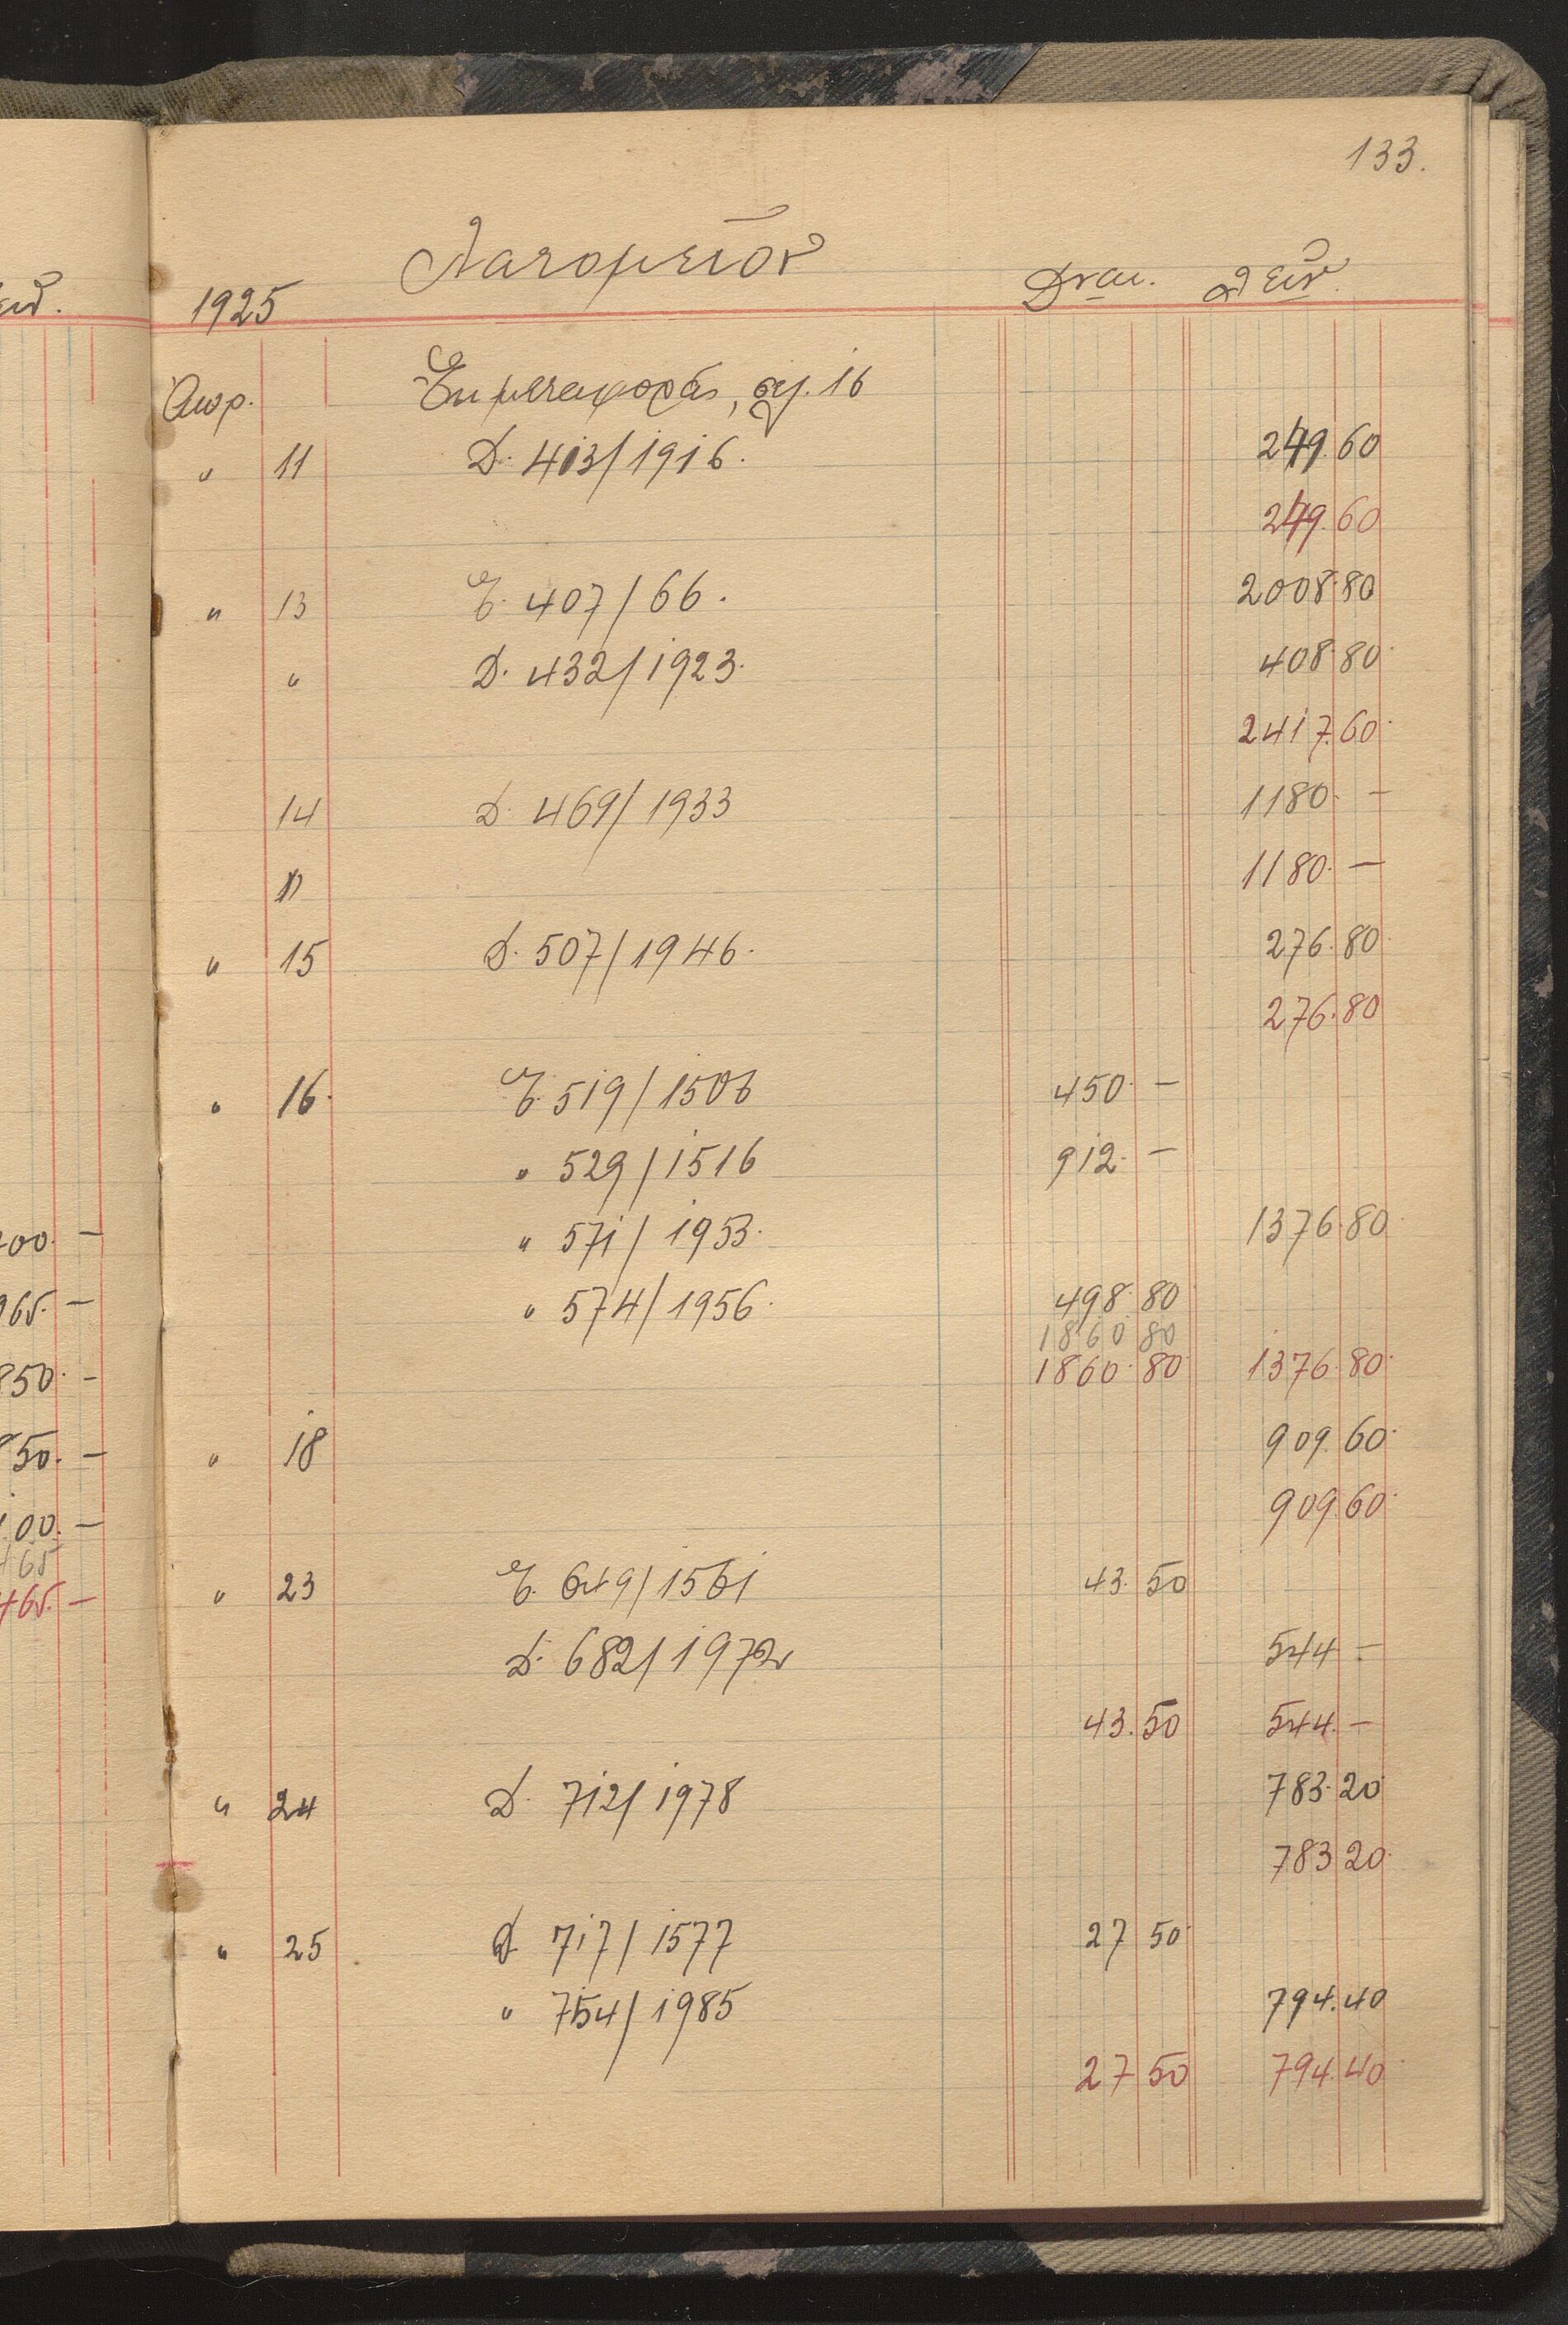 133.
Λατομεῖον
1925 Δραχ. Δειν.
Απρ. Ἐκ μεταφορᾶς, σελ. 16
" 11 Δ. 413/1916. 249.60
249.60
" 13 Ε. 407/66. 2008.80
" Δ. 432/1923. 408.80
2417.60
14 Δ. 469/1933 1180.—
" 1180.—
" 15 Δ. 507/1946. 276.80
276.80
" 16. Ε. 519/1506 450.—
" 529/1516 912.—
" 571/1953. 1376.80
" 574/1956. 498.80
1860 80
1860.80 1376.80
" 18 909.60
909.60
" 23 Ε. 649/1561 43.50
Δ. 682/1972 544—
43.50 544.—
" 24 Δ. 712/1978 783.20
783 20
" 25 Δ 717/1577 27 50
" 754/1985 794.40
27 50 794.40
00.—
65.—
850.—
50.—
00.—
465
465.—